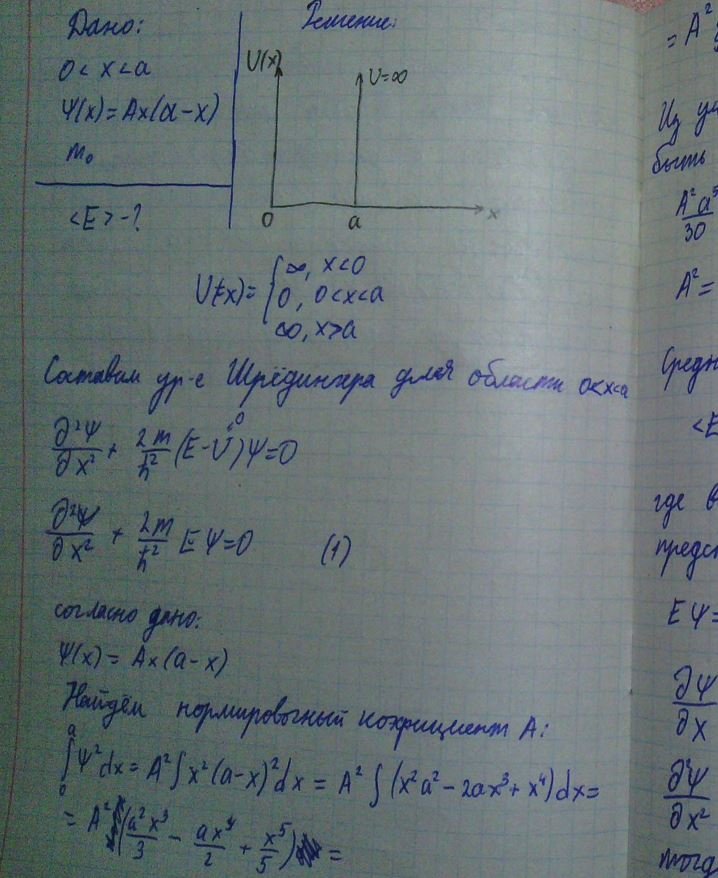 Дано:
0 < x < a
Ψ(x) = Ax(a-x)
m₀
<E> -?
Решение:
U(x)
U=∞
0
a
x
U(x) = { ∞, x<0
0, 0<x<a
∞, x>a
Составим ур-е Шрёдингера для области 0<x<a
∂²Ψ/∂x² + 2m/ħ² (E-U)Ψ=0
0
∂²Ψ/∂x² + 2m/ħ² EΨ=0 (1)
согласно дано:
Ψ(x) = Ax(a-x)
Найдём нормировочный коэфициент A:
∫₀ᵃ Ψ²dx = A² ∫ x²(a-x)²dx = A² ∫ (x²a² - 2ax³ + x⁴)dx =
= A² (a²x³/3 - ax⁴/2 + x⁵/5) =
= A²
Из
быть
A²a⁵/30
A² =
<E
где в
EΨ=
∂Ψ/∂x
∂²Ψ/∂x²